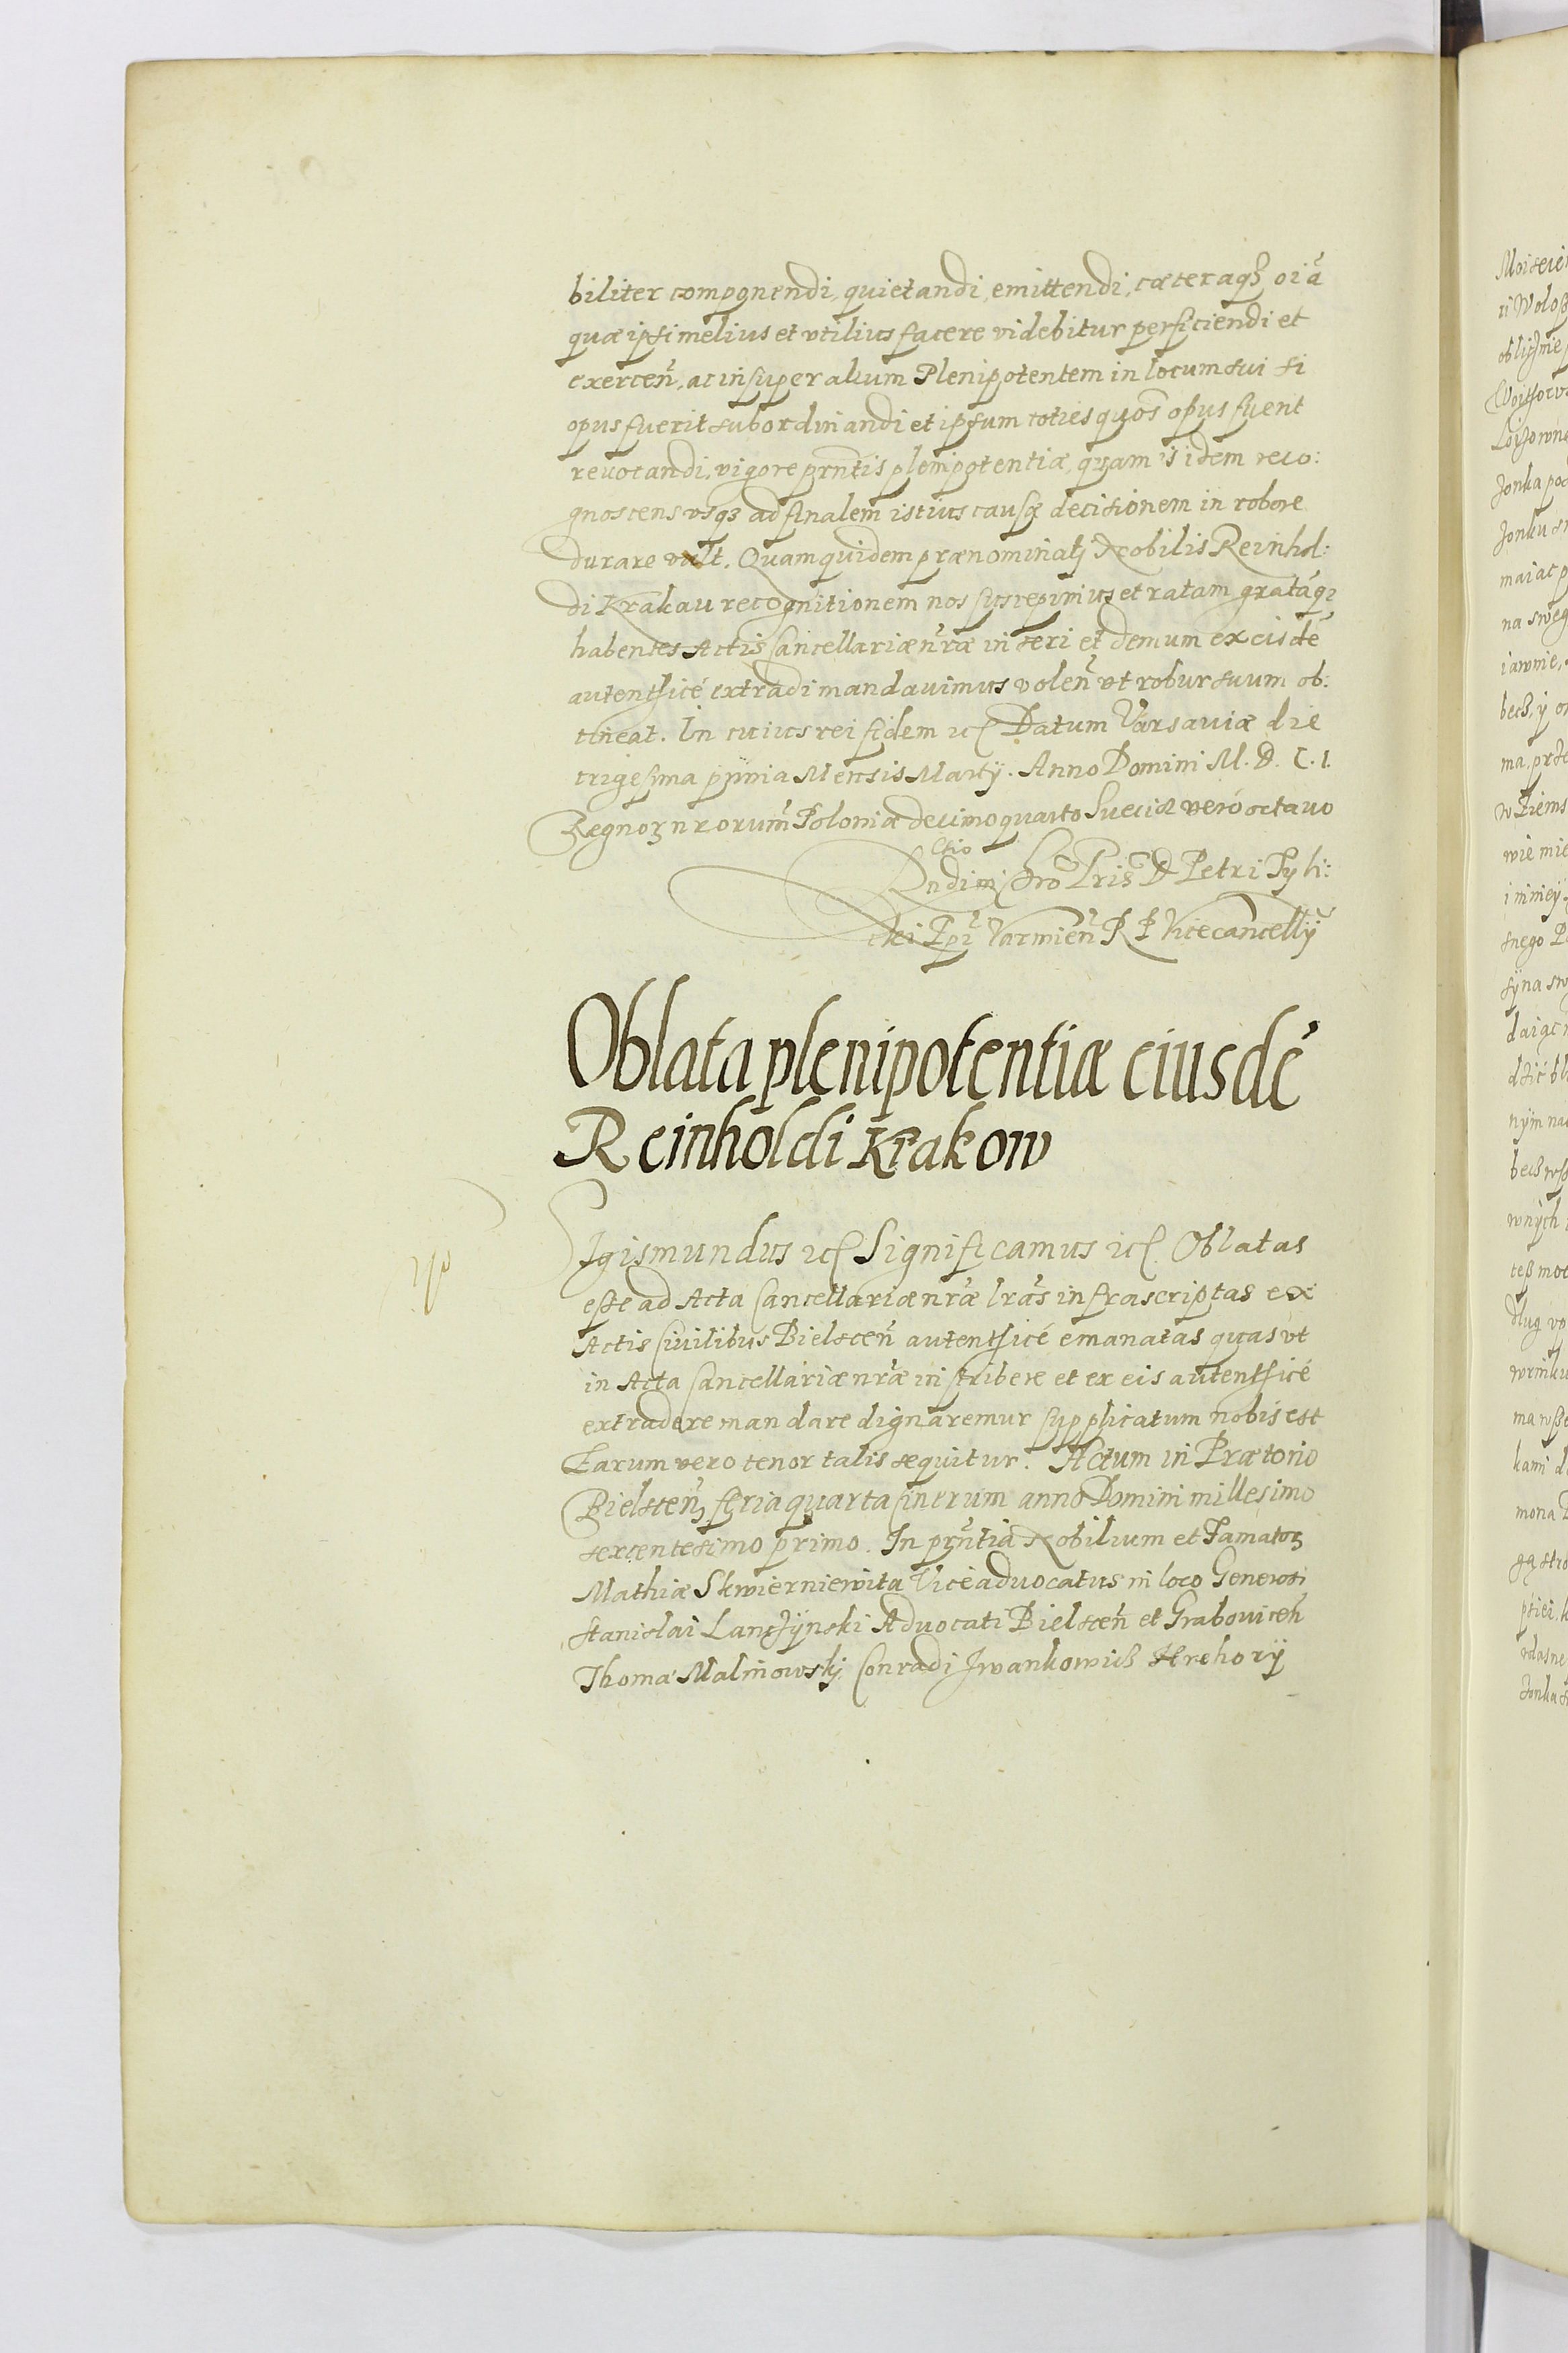 biliter componendi, quietandi, emittendi, cæteraqȝ oiã
quæ ipsi melius et vtilius facere videbitur perficiendi et
exerceñ, ac insuper alium Plenipotentem in locum sui si
opus fuerit subordinandi et ipsum toties quos̃ opus fuerit
reuocandi, vigore prñtis plenipotentiæ, quam is idem reco:
gnoscens vsqȝ ad finalem istius causæ decisionem in robore
durare vult. Quam quidem prænominatj Nobilis Reinhol:
di Krakau recognitionem nos suscepimus et ratam gratãqȝ
habentes Actis Cancellariæ nr̃æ inseri et demum ex eisdẽ
autenthicé extradi mandauimus voleñ vt robur suum ob:
tineat. In cuius rei fidem etc Datum Varsauiæ die
trigesima prima Mensis Martij. Anno Domini M. D. C. I.
Regnoȝ nrorum̃ Poloniæ decimoquarto Sueciæ veró octauo
ctio
Rndimj Chro Pris D Petri Tyli:
ckei Epĩ Varmieñ R P Vicecancellij
Oblata plenipotentiæ eiusdẽ
Reinholdi Krakow
Sigismundus etc Significamus etc. Oblatas
esse ad Acta Cancellariæ nr̃æ lrãs infrascriptas ex
Actis Ciuilibus Bielsceñ autenthicé emanatas quas vt
in Acta Cancellariæ nr̃æ inscribere et ex eis autenthicé
extradere mandare dignaremur supplicatum nobis est
Earum vero tenor talis sequitur. Actum in Prætorio
Bielsceñ, feria quarta Cinerum anno Domini millesimo
sexcentesimo primo. In prñtia Nobilium et Famatoȝ
Mathiæ Skwierniewita Viceaduocatus in loco Generosi
Stanislai Lanczÿnski Aduocati Bielsceñ et Grabouiceñ
Thomæ Malinowskj, Conradi Jwankowicz Hrehorÿ